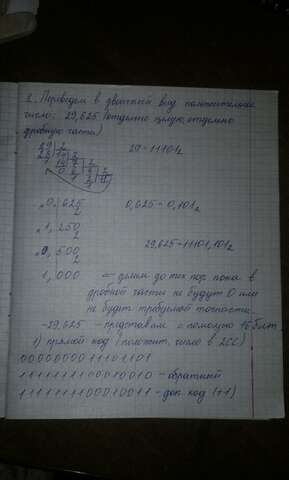 2. Переведем в двоичный вид положительное
число: 29,625 (отдельно целую, отдельно
дробную части)
29 2
28 14 2
1 14 7 2
0 6 3 2
1 2 1
1
29 - 11101₂
0,625
2
0,625 - 0,101₂
1,250
2
0,500
2
29,625 - 11101,101₂
1,000 делим до тех пор пока в
дробной части не будут 0 или
не будет требуемой точности.
-29,625 - представим с помощью 16 бит
1) прямой код (положит. число в 2СС)
0000000011101101
1111111100010010 - обратный
1111111100010011 - доп. код (+1)